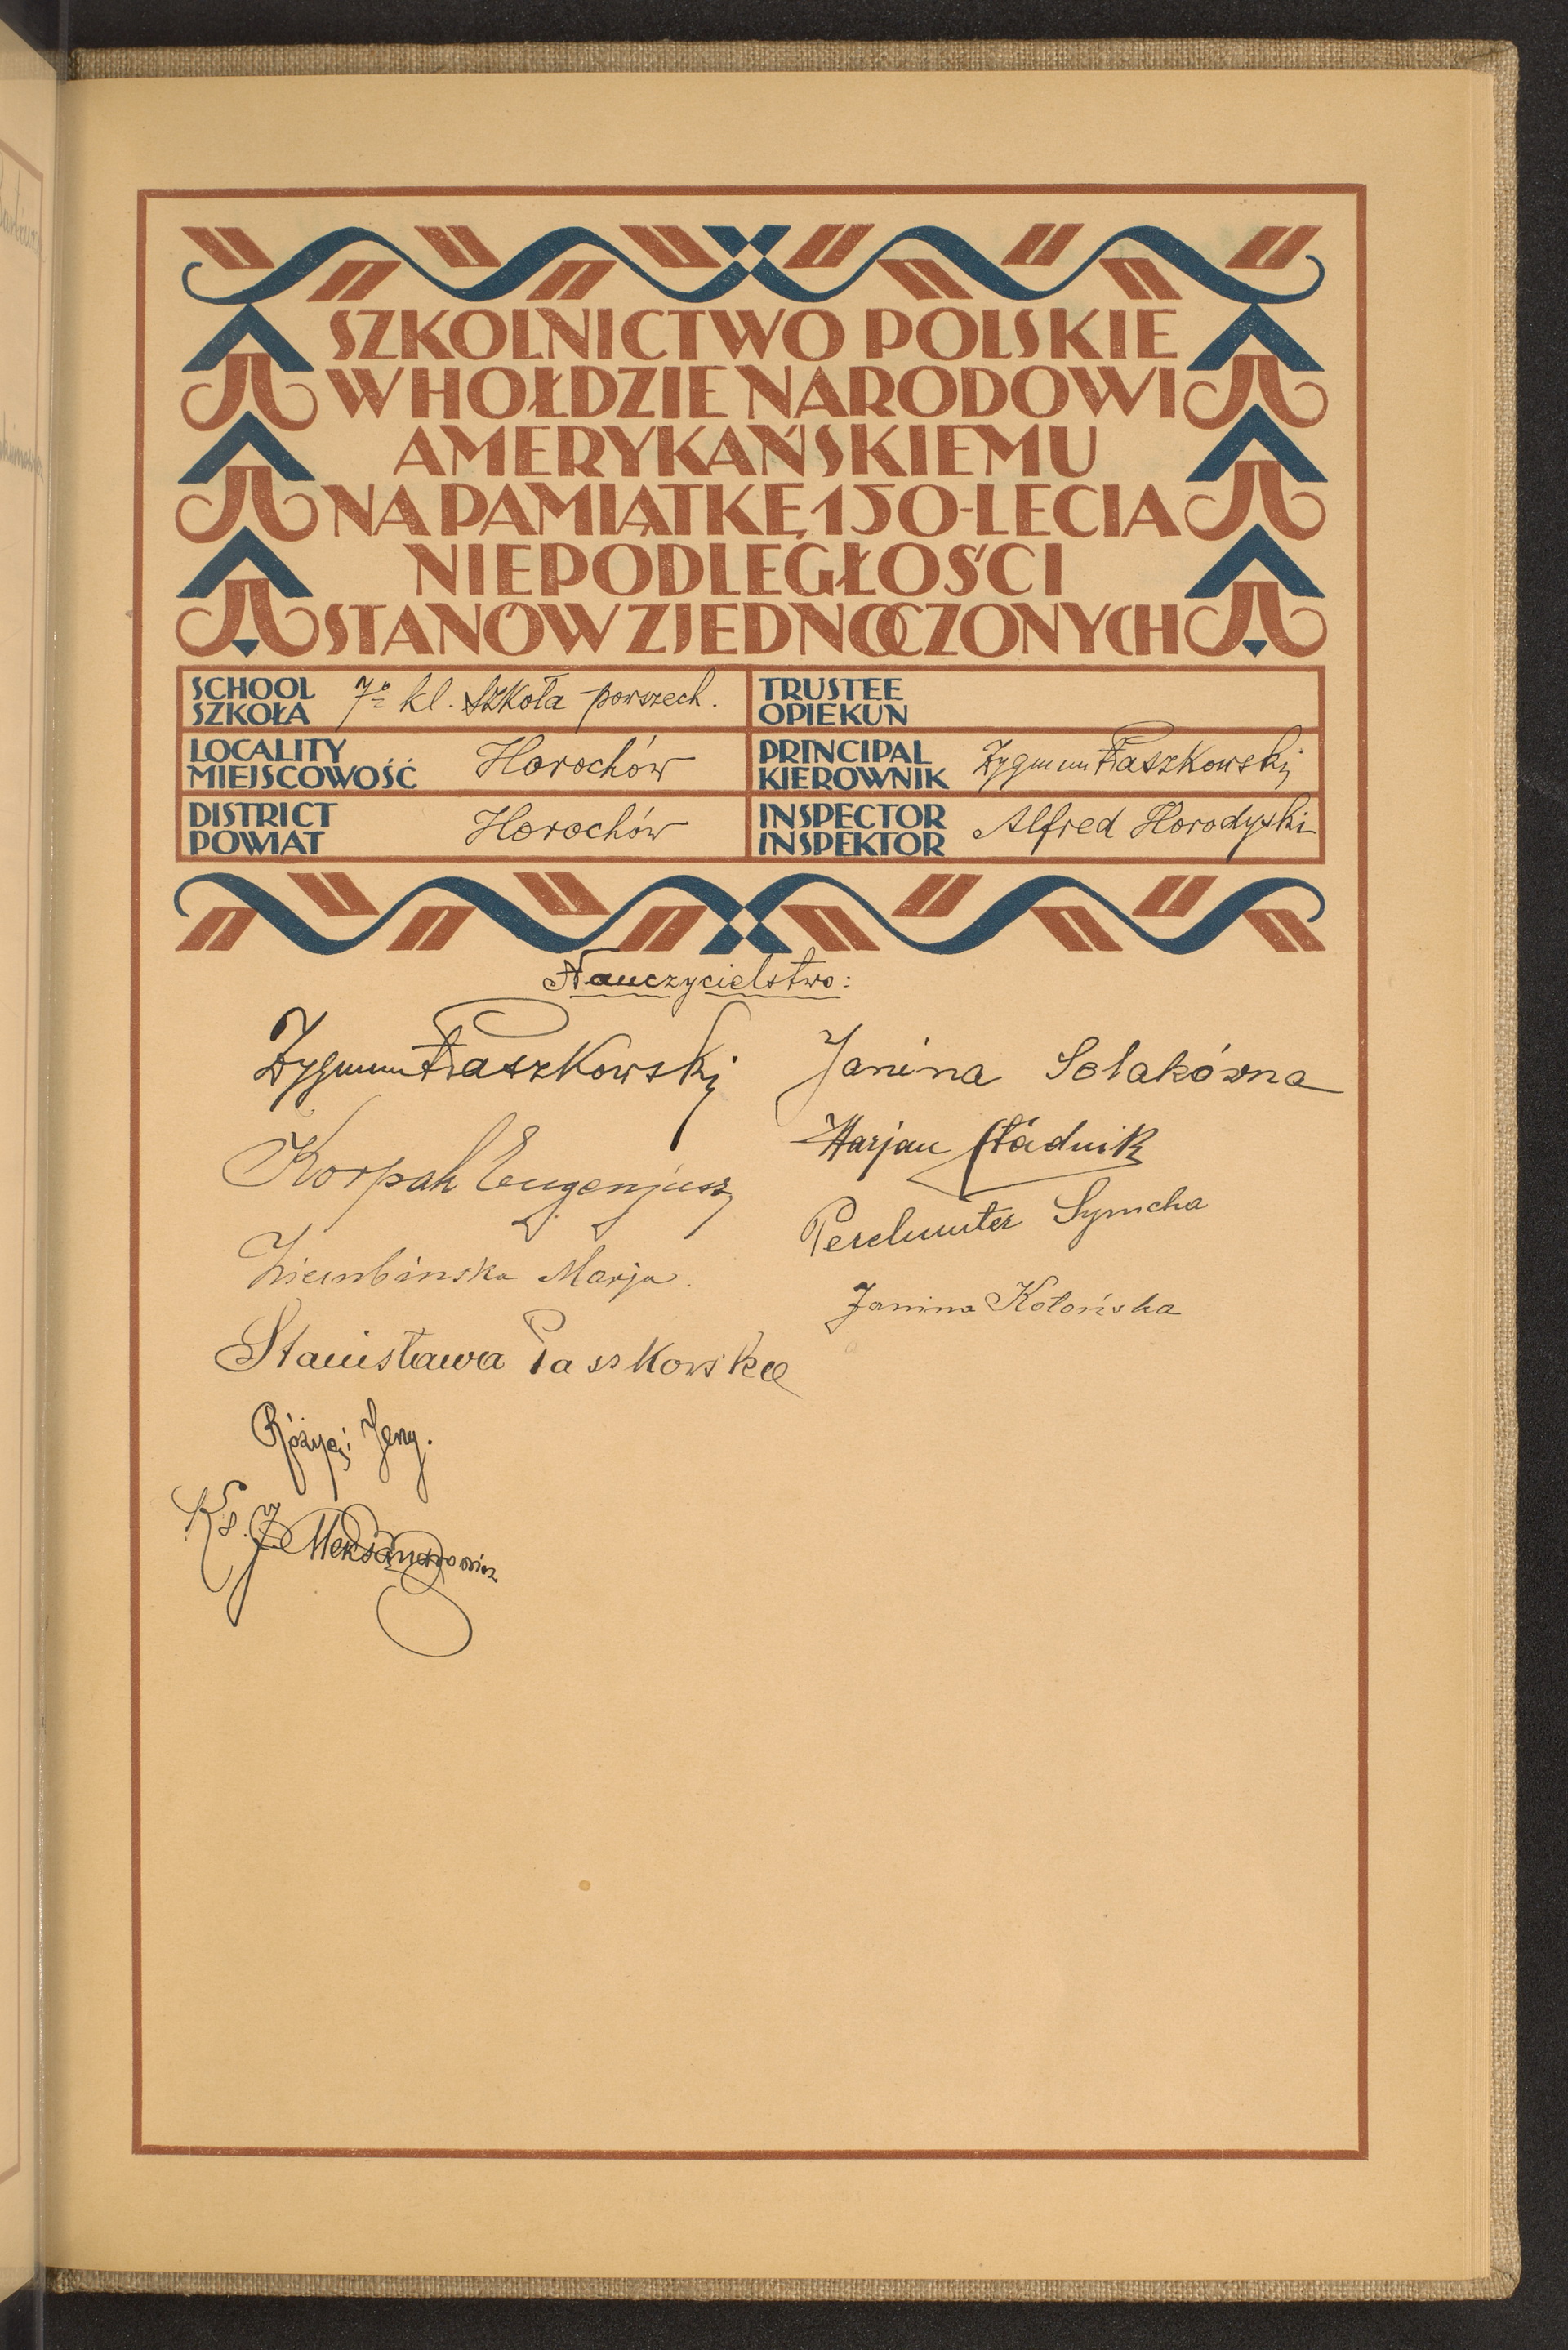 SZKOLNICTWO POLSKIE
W HOŁDZIE NARODOWI
AMERYKAŃSKIEMU
NA PAMIĄTKĘ 150-LECIA
NIEPODLEGŁOŚCI
STANÓW ZJEDNOCZONYCH
SCHOOL
SZKOŁA
7º kl. Szkoła powszech.
TRUSTEE
OPIEKUN
LOCALITY
MIEJSCOWOŚĆ
Horochów
PRINCIPAL
KIEROWNIK
Zygmunt Paszkowski
DISTRICT
POWIAT
Horochów
INSPECTOR
INSPEKTOR
Alfred Horodyski
Nauczycielstwo:
Zygmunt Paszkowski
Korpak Eugenjusz
Ziembinska Marja.
Stanisława Paszkowska
Jerzy.
Ks. J. Aleksandrowicz
Janina Solakówna
Marjan Stadnik
Perelmuter Symcha
Janina Kołońska